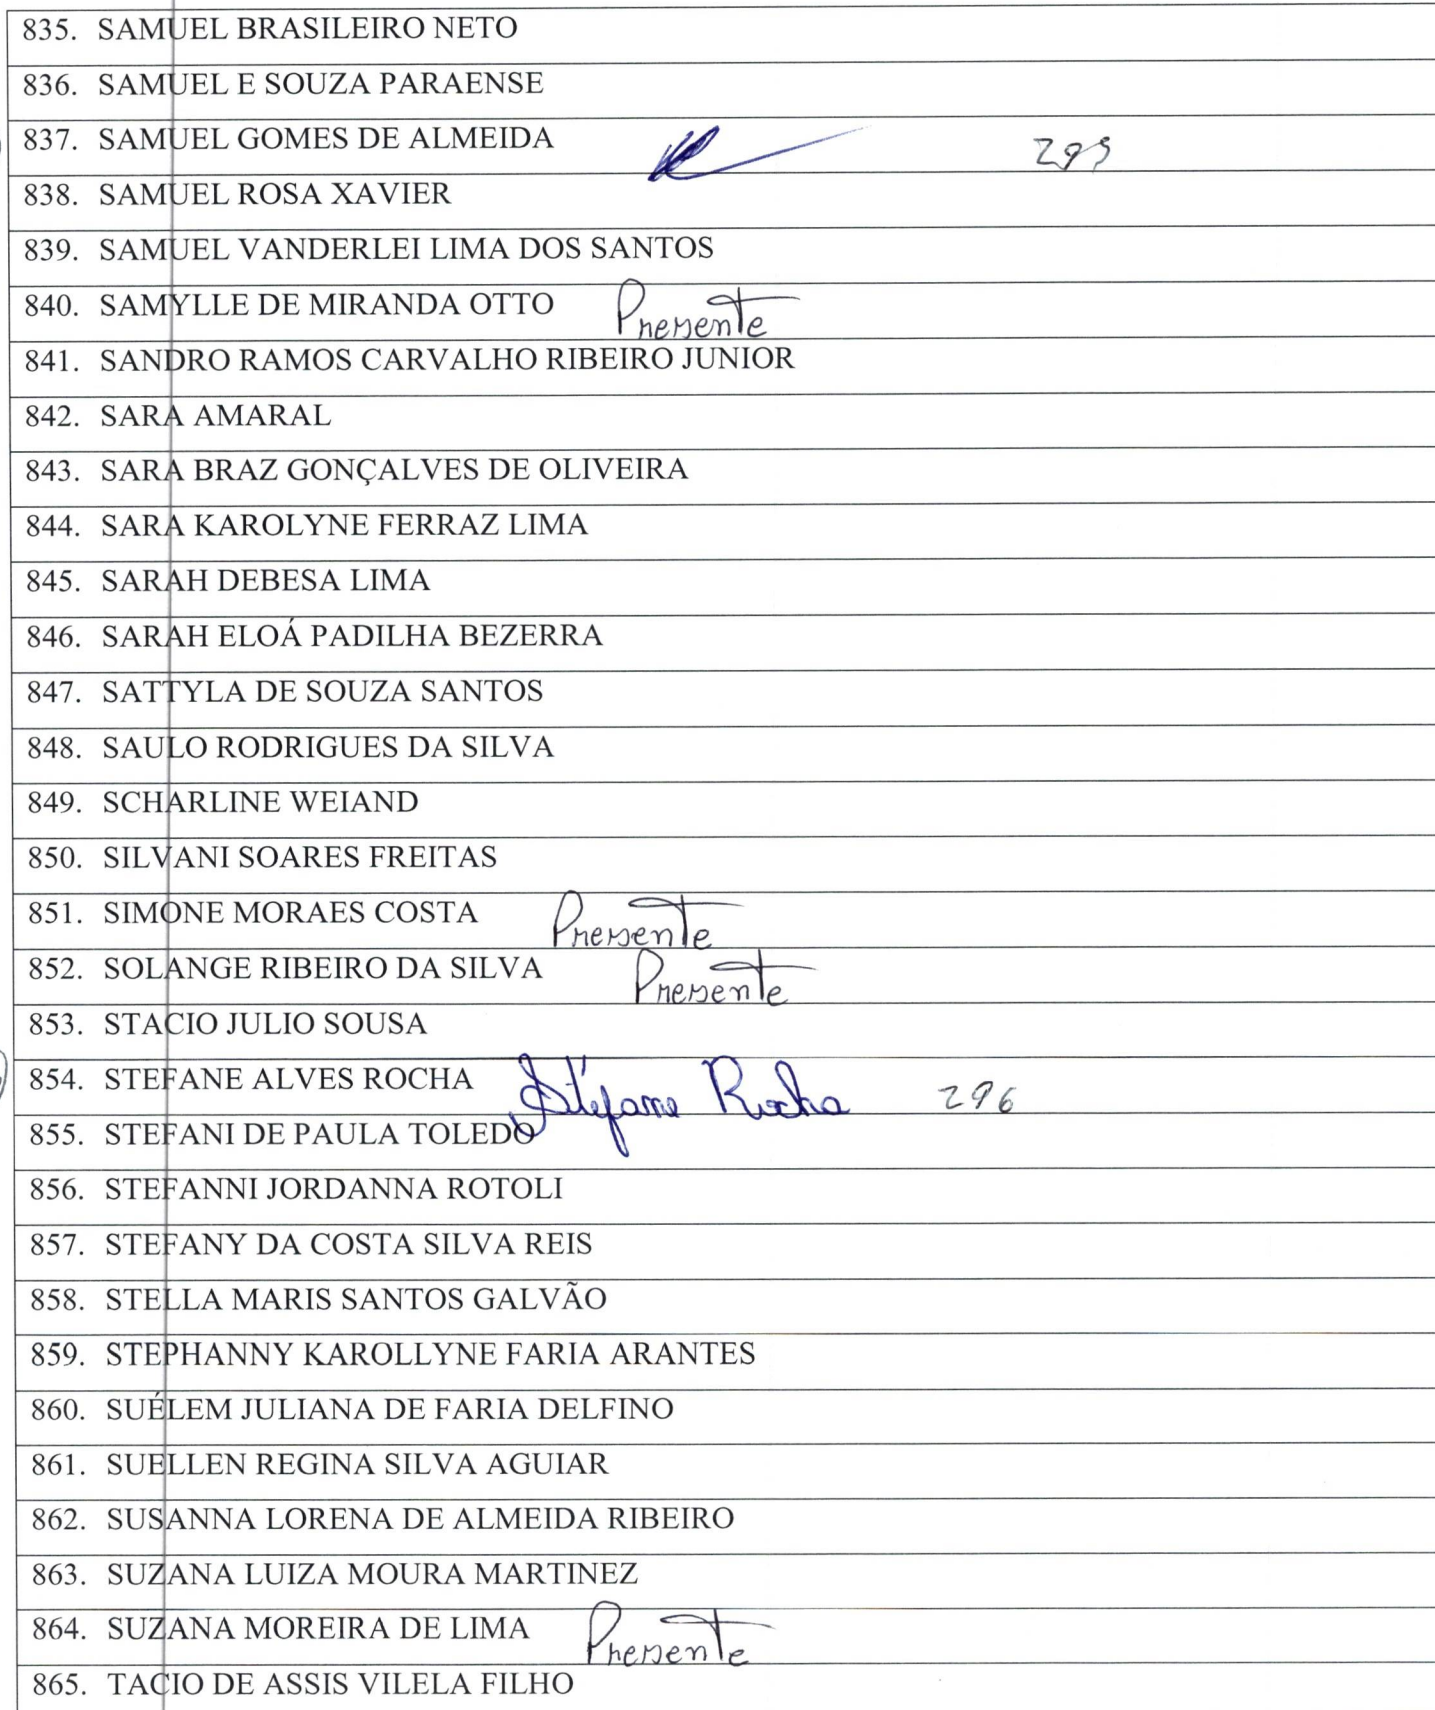 835. SAMUEL BRASILEIRO NETO
836. SAMUEL E SOUZA PARAENSE
837. SAMUEL GOMES DE ALMEIDA 295
838. SAMUEL ROSA XAVIER
839. SAMUEL VANDERLEI LIMA DOS SANTOS
840. SAMYLLE DE MIRANDA OTTO Presente
841. SANDRO RAMOS CARVALHO RIBEIRO JUNIOR
842. SARA AMARAL
843. SARA BRAZ GONÇALVES DE OLIVEIRA
844. SARA KAROLYNE FERRAZ LIMA
845. SARAH DEBESA LIMA
846. SARAH ELOÁ PADILHA BEZERRA
847. SATTYLA DE SOUZA SANTOS
848. SAULO RODRIGUES DA SILVA
849. SCHARLINE WEIAND
850. SILVANI SOARES FREITAS
851. SIMONE MORAES COSTA Presente
852. SOLANGE RIBEIRO DA SILVA Presente
853. STACIO JULIO SOUSA
854. STEFANE ALVES ROCHA Stéfane Rocha 296
855. STEFANI DE PAULA TOLEDO
856. STEFANNI JORDANNA ROTOLI
857. STEFANY DA COSTA SILVA REIS
858. STELLA MARIS SANTOS GALVÃO
859. STEPHANNY KAROLLYNE FARIA ARANTES
860. SUÉLEM JULIANA DE FARIA DELFINO
861. SUELLEN REGINA SILVA AGUIAR
862. SUSANNA LORENA DE ALMEIDA RIBEIRO
863. SUZANA LUIZA MOURA MARTINEZ
864. SUZANA MOREIRA DE LIMA Presente
865. TACIO DE ASSIS VILELA FILHO